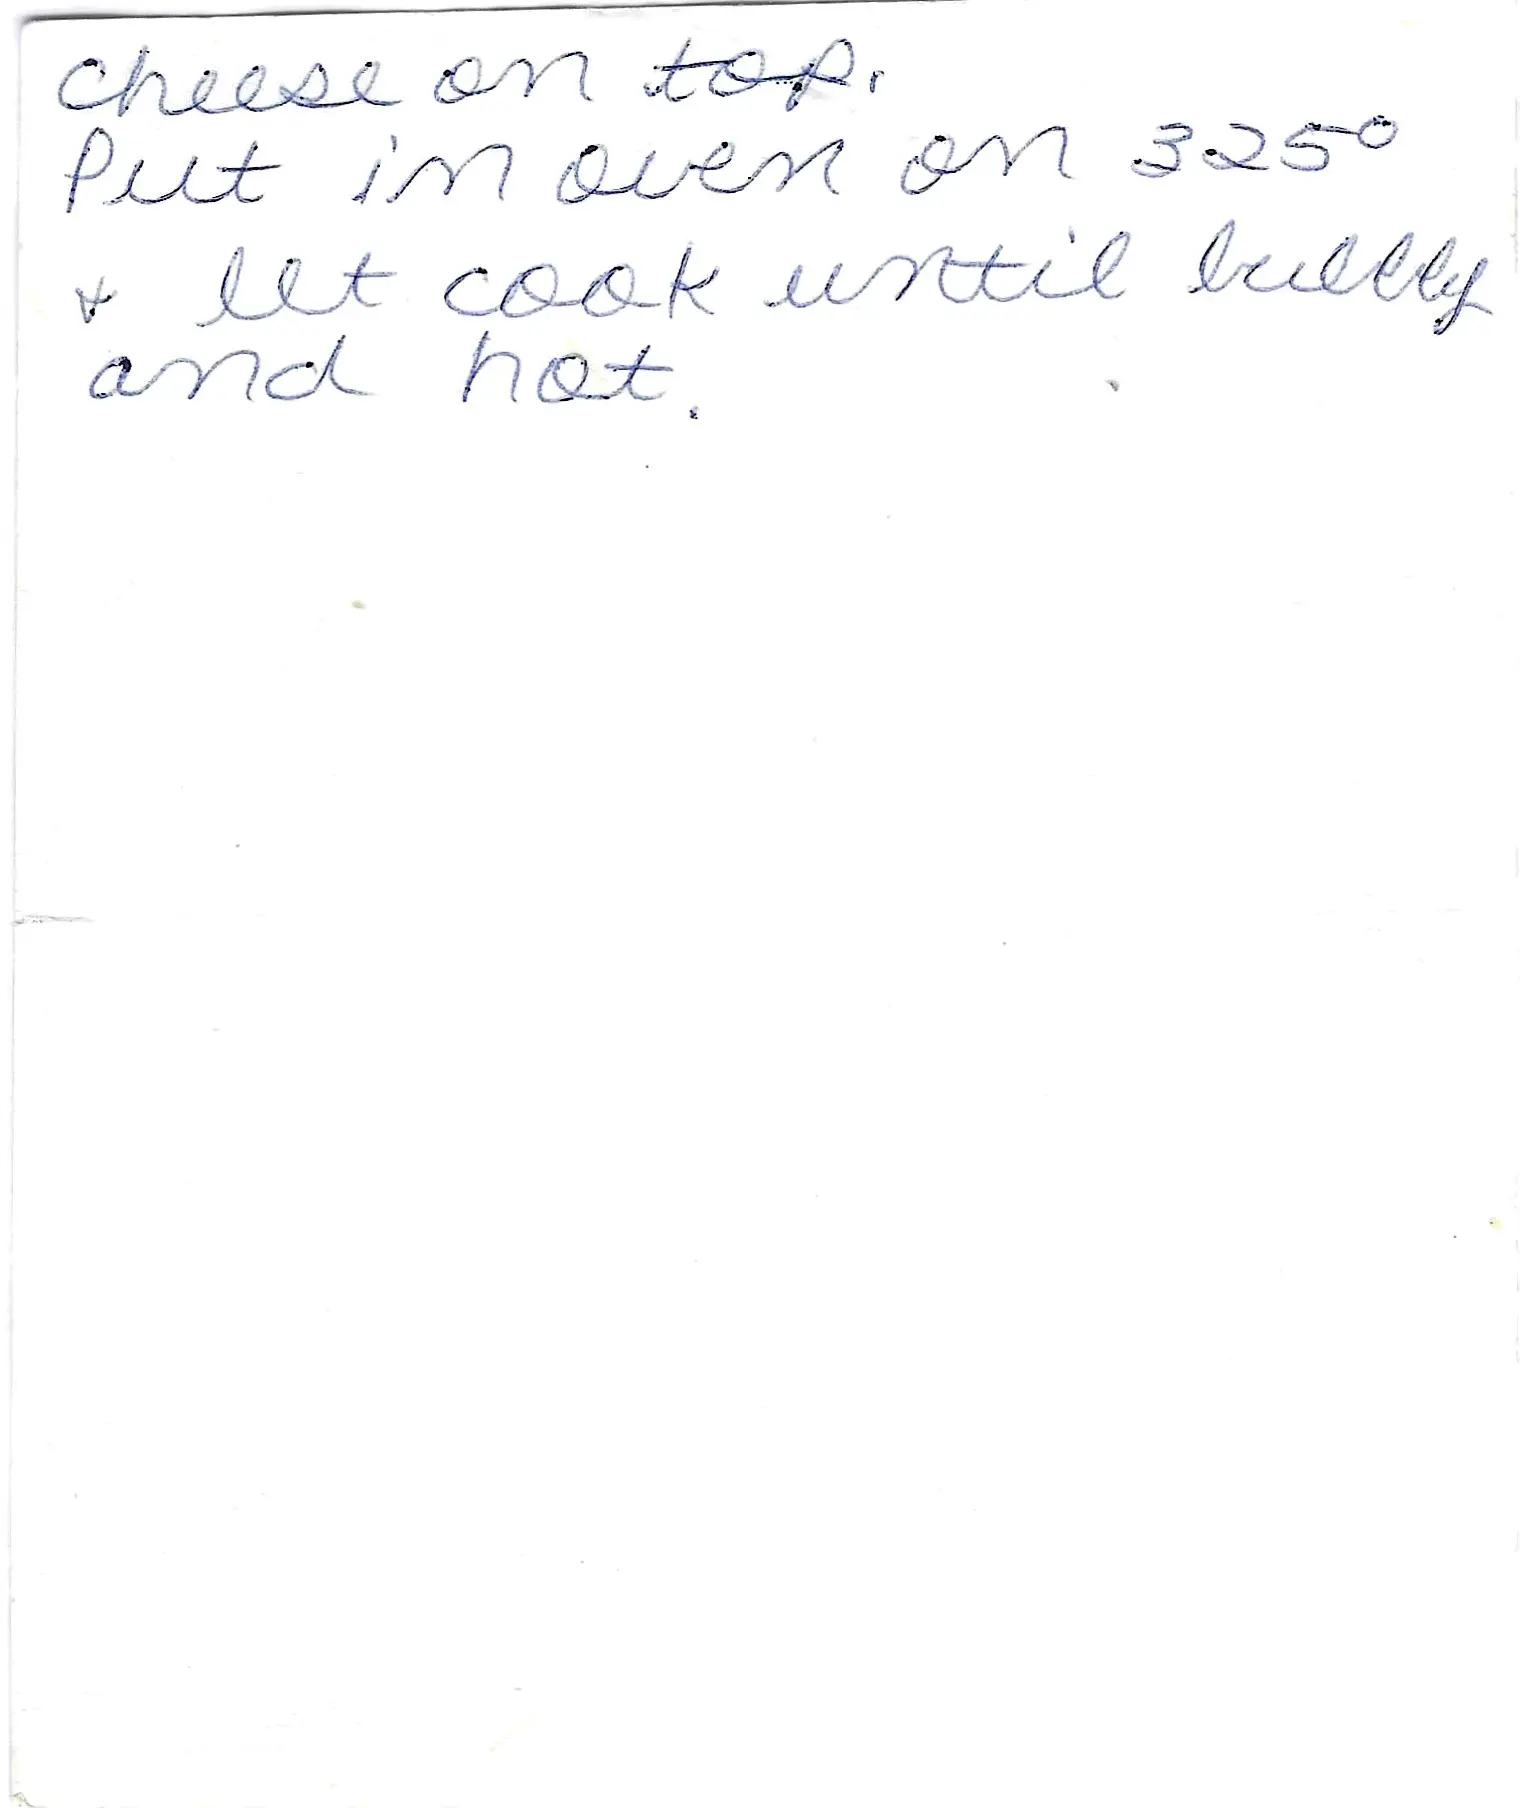 cheese on top.
Put in oven on 325°
& let cook until bubbly
and hot.